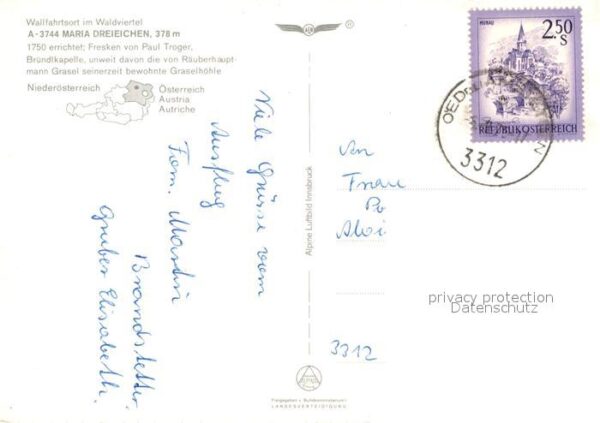 Wallfahrtsort im Waldviertel
A-3744 MARIA DREIEICHEN, 378 m
1750 errichtet; Fresken von Paul Troger,
Bründlkapelle, unweit davon die von Räuberhaupt-
mann Grasel seinerzeit bewohnte Graselhöhle
Niederösterreich
Österreich
Austria
Autriche
Viele Grüsse vom
Ausflug
Fam. Martin
Brandstetter
Gruber Elisabeth.
Alpine Luftbild Innsbruck
Freigegeben v. Bundesministerium f.
LANDESVERTEIDIGUNG
MURAU
2.50
S
REPUBLIK ÖSTERREICH
3312
An
Frau
Po
Aloi
privacy protection
Datenschutz
3312